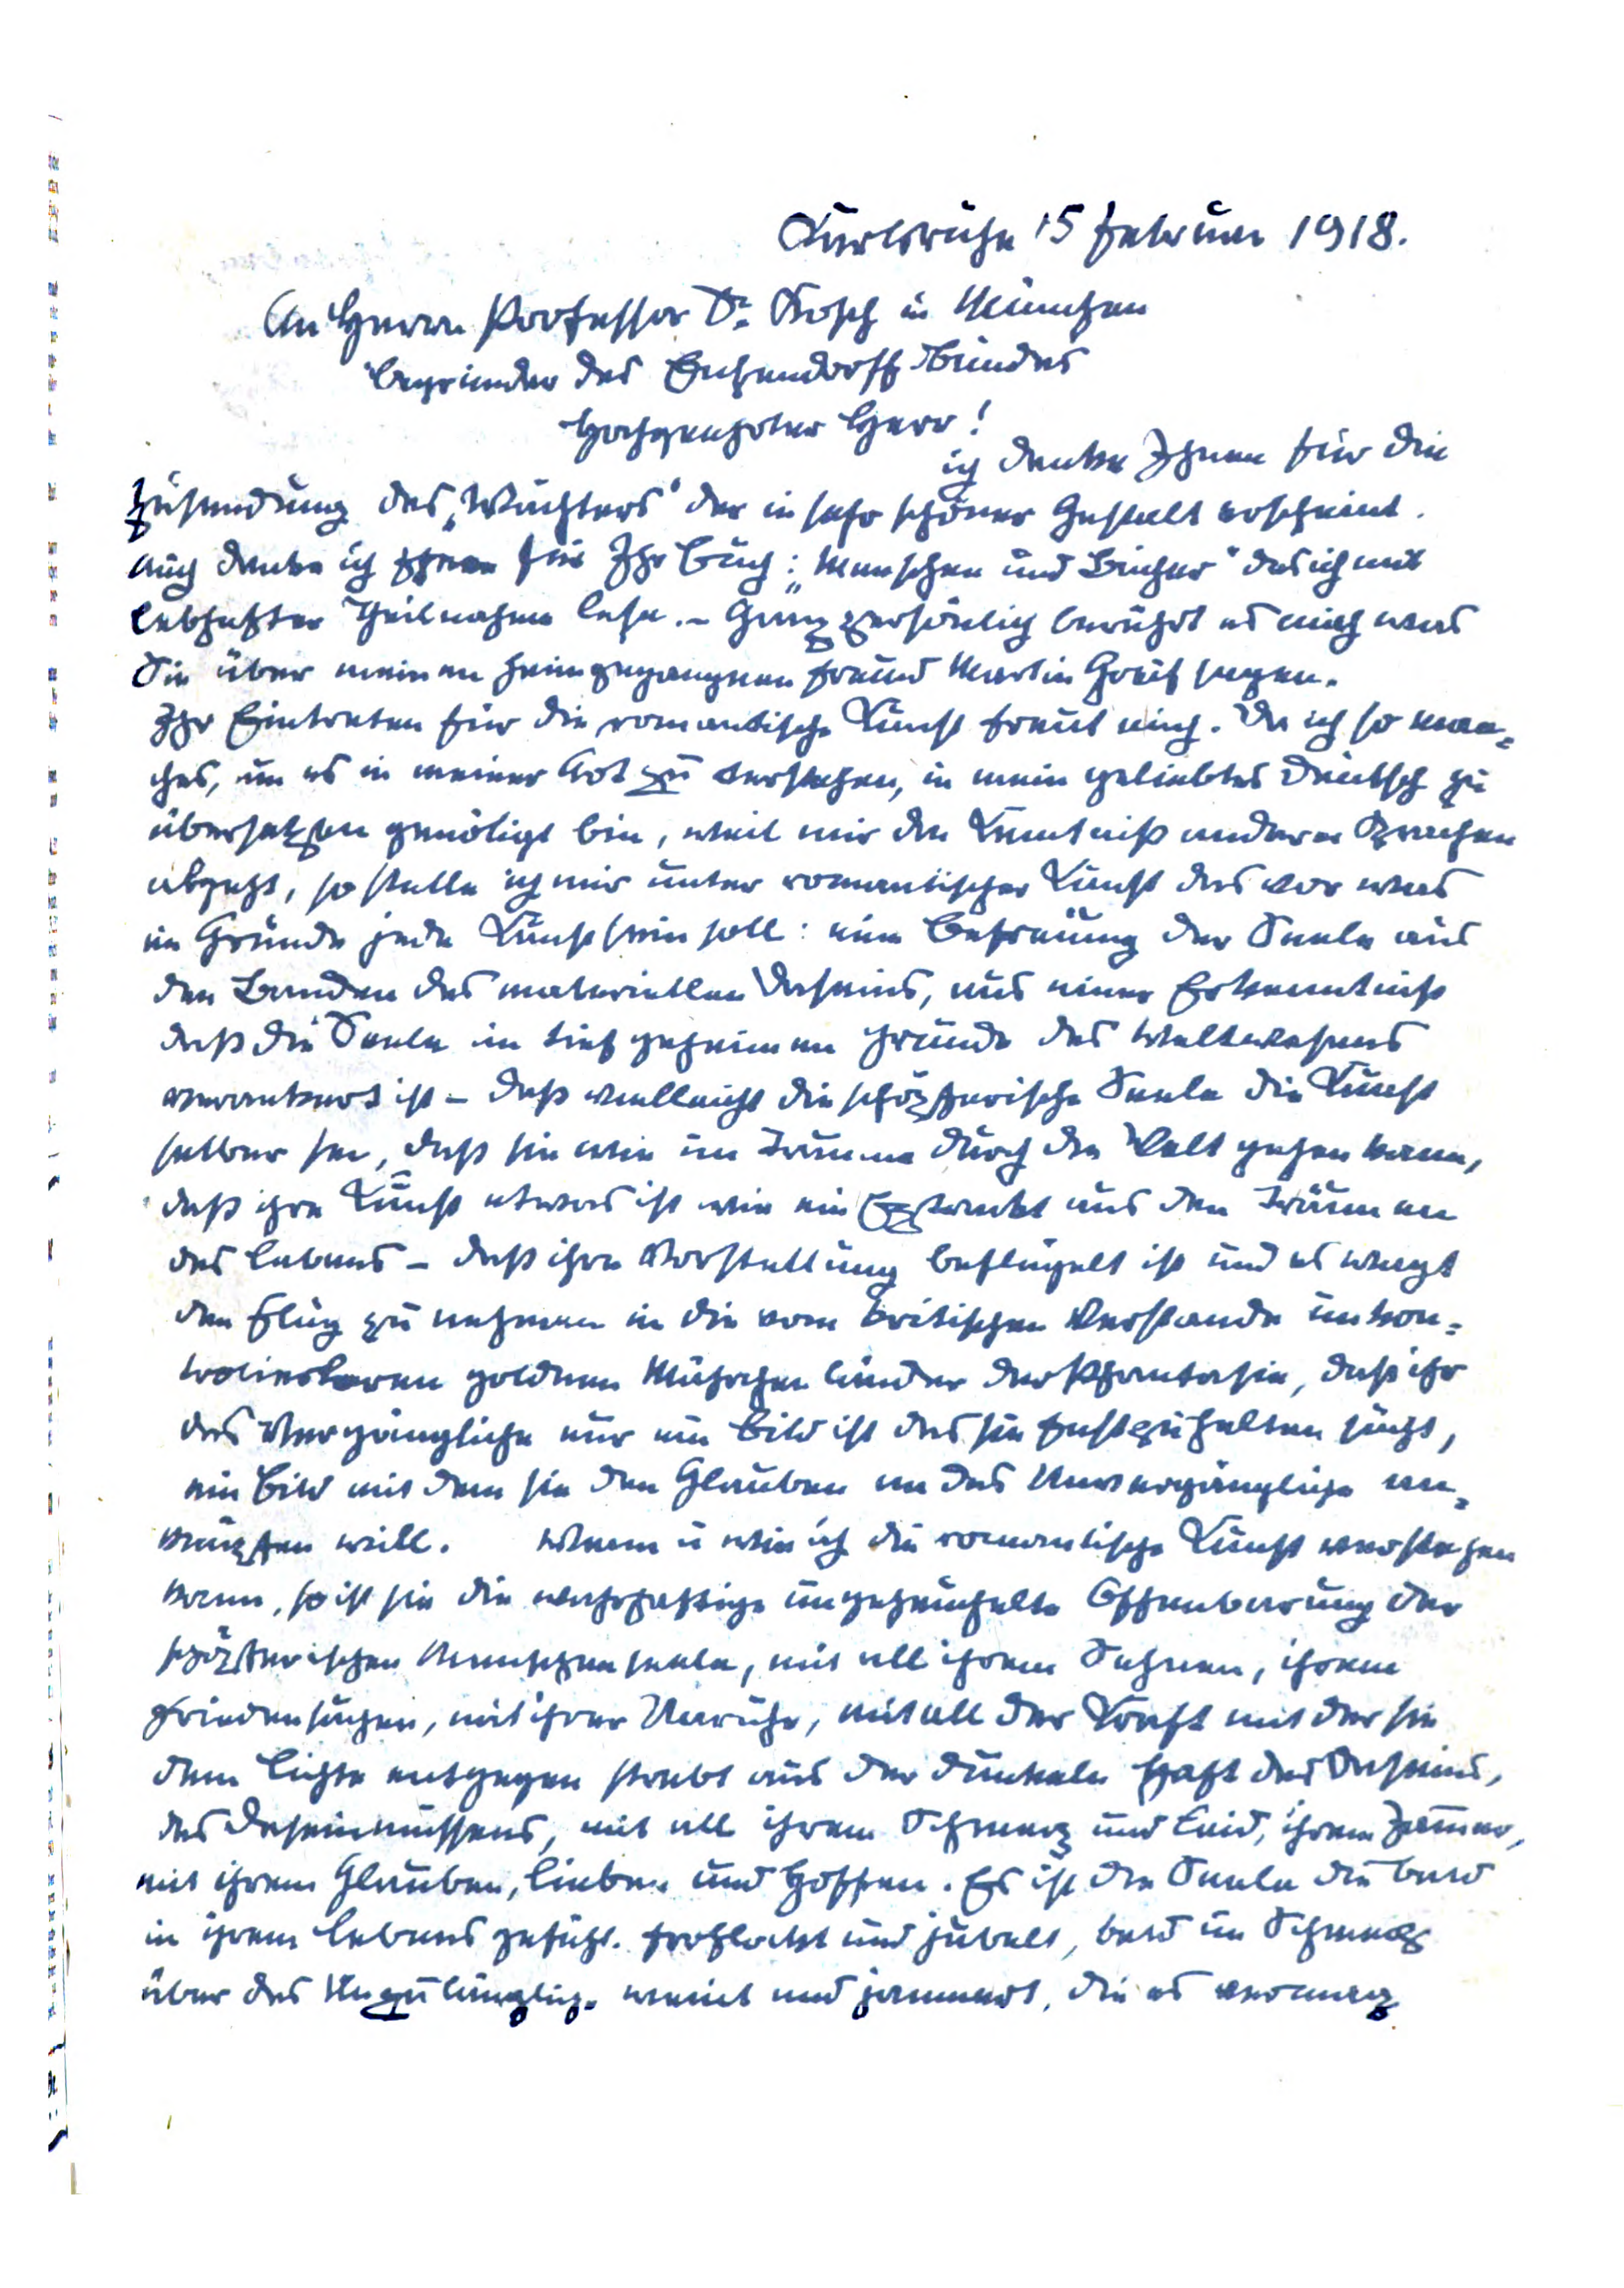 Karlsruhe 15 Februar 1918.
An Herrn Professor Dr. Kosch in München
Begründer des Eichendorff Bundes
Hochgeehrter Herr!
ich danke Ihnen für die
Zusendung des „Wächters" der in sehr schöner Gestalt erscheint.
auch danke ich Ihnen für Ihr Buch: „Menschen und Bücher" das ich mit
lebhafter Theilnahme lese. – Ganz persönlich berührt es mich was
Sie über meinen heimgegangnen Freund Martin Greif sagen.
Ihr Eintreten für die romantische Kunst freut mich. Da ich so man=
ches, um es in meiner Art zu verstehen, in mein geliebtes Deutsch zu
übersetzen genötigt bin, weil mir die Kenntniß anderer Sprachen
abgeht, so stelle ich mir unter romantischer Kunst das vor was
im Grunde jede Kunst sein soll: eine Befreiung der Seele aus
den Banden des materiellen Daseins, aus einer Erkenntniß
daß die Seele im tief geheimen Grunde des Weltwesens
verankert ist – daß vielleicht die schöpferische Seele die Kunst
selber sei, daß sie wie im Traume durch die Welt gehen kann,
daß ihre Kunst etwas ist wie ein Extrakt aus den Träumen
des Lebens – daß ihre Vorstellung beflügelt ist und es wagt
den Flug zu nehmen in die vom kritischen Verstande unkon=
trolierbaren goldnen Märchenländer der Phantasie, daß ihr
das Vergängliche nur ein Bild ist das sie festzuhalten sucht,
ein Bild mit dem sie den Glauben an das Unvergängliche an=
knüpfen will. Wenn u wie ich die romantische Kunst verstehen
kann, so ist sie die wahrhaftige ungeheuchelte Offenbarung der
schöpferischen Menschenseele, mit all ihrem Sehnen, ihrem
Friedensuchen, mit ihrer Unruhe, mit all der Kraft mit der sie
dem Lichte entgegen strebt aus der dunkeln Haft des Daseins,
des Daseinmüssens, mit all ihrem Schmerz und Leid, ihrem Jammer,
mit ihrem Glauben, Lieben und Hoffen. Es ist die Seele die bald
in ihrem Lebensgefühl frohlockt und jubelt, bald im Schmerz
über das Unzulängliche weint und jammert, die es vermag